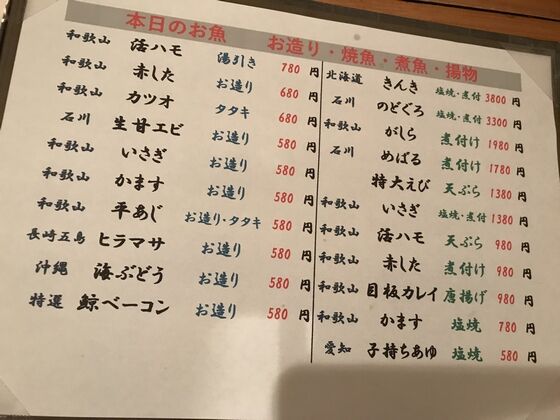 本日のお魚 お造り・焼魚・煮魚・揚物
和歌山 活ハモ 湯引き 780円
和歌山 赤した お造り 680円
和歌山 カツオ タタキ 680円
石川 生甘エビ お造り 580円
和歌山 いさぎ お造り 580円
和歌山 かます お造り 580円
和歌山 平あじ お造り・タタキ 580円
長崎五島 ヒラマサ お造り 580円
沖縄 海ぶどう お造り 580円
特選 鯨ベーコン お造り 580円
北海道 きんき 塩焼・煮付 3800円
石川 のどぐろ 塩焼・煮付 3300円
和歌山 がしら 煮付け 1980円
石川 めばる 煮付け 1780円
特大えび 天ぷら 1380円
和歌山 いさぎ 塩焼・煮付 1380円
和歌山 活ハモ 天ぷら 980円
和歌山 赤した 煮付け 980円
和歌山 目板カレイ 唐揚げ 980円
和歌山 かます 塩焼 780円
愛知 子持ちあゆ 塩焼 580円